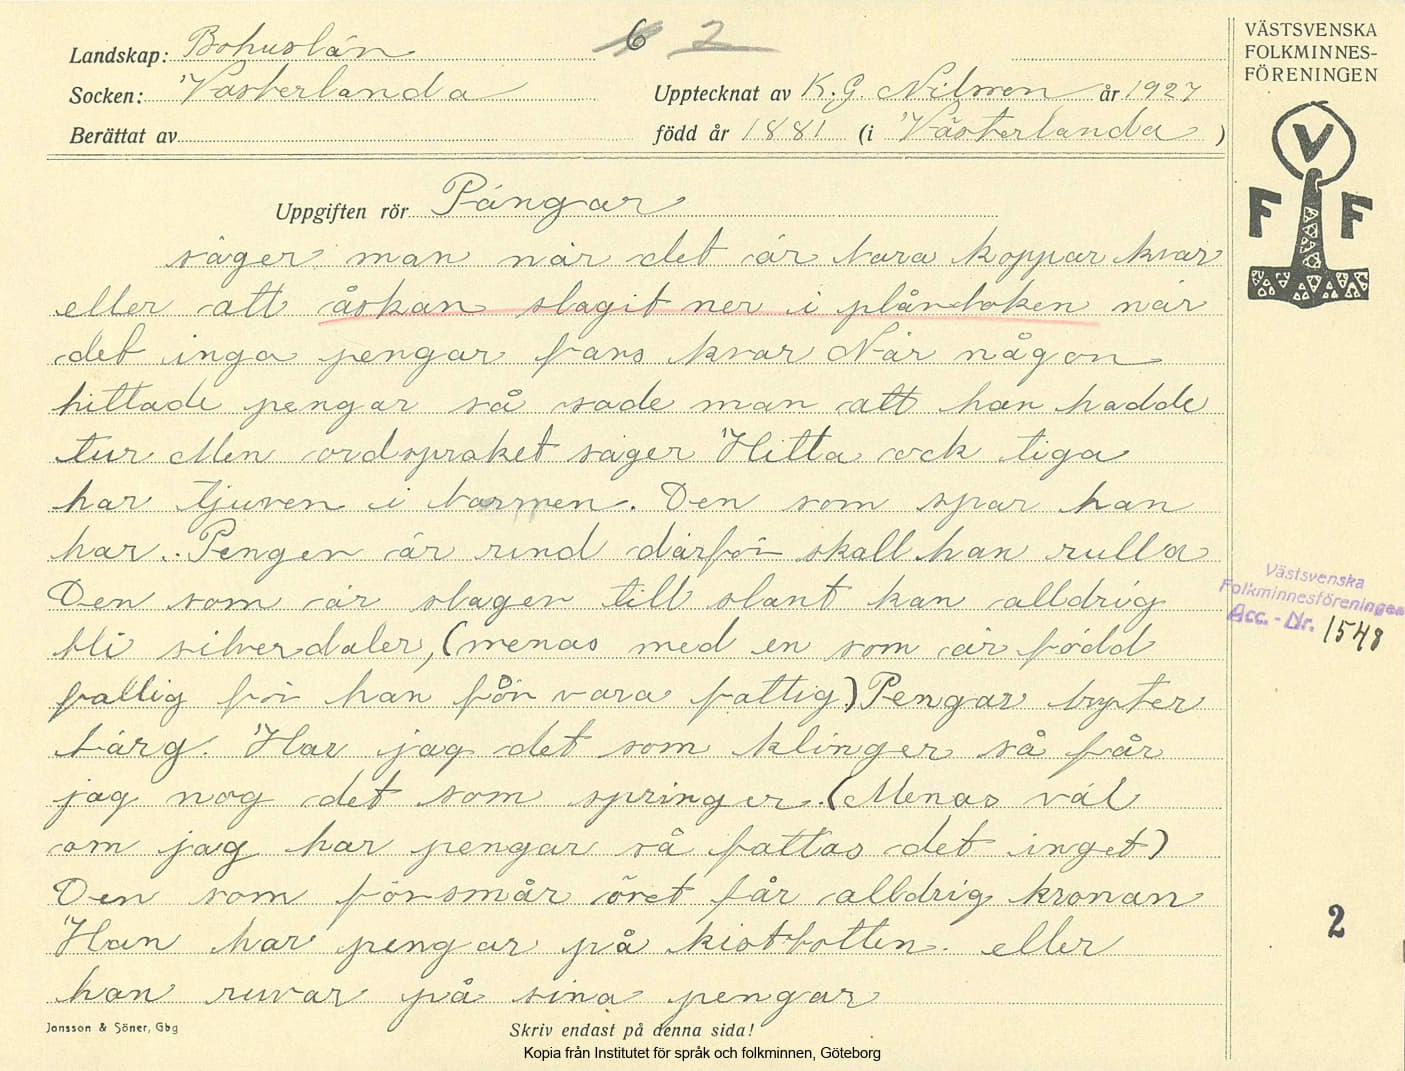 Landskap: Bohuslän
6 2
Socken: Västerlanda
Upptecknat av K. G. Nilsson år 1927
Berättat av
född år 1881 (i Västerlanda )
VÄSTSVENSKA
FOLKMINNES-
FÖRENINGEN
V
F F
Uppgiften rör Pängar
säger man när det är bara koppar kvar
eller att åskan slagit ner i plånboken när
det inga pengar fans kvar När någon
hittade pengar så sade man att han hadde
tur Men ordspraket säger Hitta ock tiga
har tjuven i barmen. Den som spar han
har. Pengen är rund därför skall han rulla
Den som är slagen till slant kan alldrig
bli silverdaler, (menas med en som är född
fattig för han för vara fattig) Pengar bryter
bärg. Har jag det som klinger så får
jag nog det som springer. (Menas väl
om jag har pengar så fattas det inget)
Den som försmår öret får alldrig kronan
Han har pengar på kistbotten. eller
han ruvar på sina pengar
Västsvenska
Folkminnesföreningen
Acc.-Nr. 1548
2
Jonsson & Söner, Gbg
Skriv endast på denna sida!
Kopia från Institutet för språk och folkminnen, Göteborg